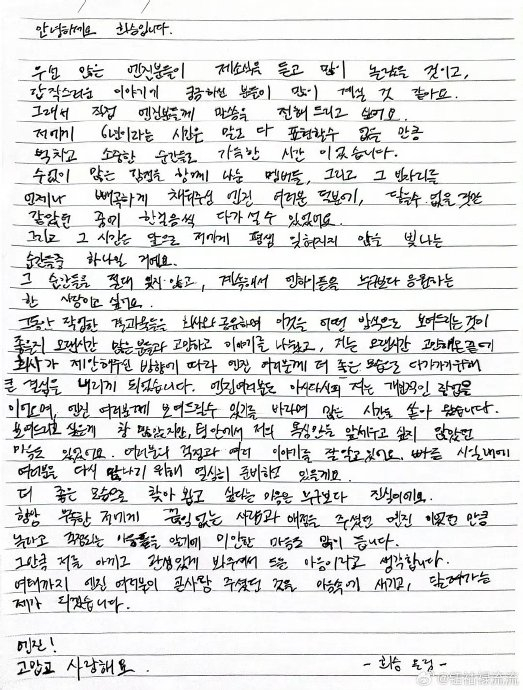 안녕하세요 희승입니다.
우선 많은 엔진분들이 제소식을 듣고 많이 놀랐을 것이고,
갑작스러운 이야기에 궁금하신 분들이 많이 계실 것 같아요.
그래서 직접 엔진분들께 말씀을 전해 드리고 싶어요.
저에게 6년이라는 시간은 말로 다 표현할수 없을 만큼
벅차고 소중한 순간들로 가득한 시간 이었습니다.
수없이 많은 감정을 함께 나눈 멤버들, 그리고 그 빈자리를
언제나 빼곡하게 채워주신 엔진 여러분 덕분에, 닿을수 없을 것만
같았던 꿈에 한걸음씩 다가설 수 있었어요.
그리고 그 시간은 앞으로 저에게 평생 잊혀지지 않을 빛나는
순간들중 하나일 거에요.
그 순간들을 절대 잊지 않고, 계속해서 엔하이픈을 누구보다 응원하는
한 사람이고 싶어요.
그동안 작업한 결과물들을 회사와 공유하며 이것을 어떤 방식으로 보여드리는것이
좋을지 오랜시간 많은분들과 고민하고 이야기를 나눴고, 저는 오랜시간 고민해온 끝에
회사가 제안해주신 방향에 따라 엔진 여러분께 더 좋은 모습으로 다가가기위해
큰 결심을 내리게 되었습니다. 엔진여러분도 아시다시피 저는 개인적인 작업을
이어오며, 엔진 여러분께 보여드릴수 있기를 바라며 많은 시간을 쏟아 왔습니다.
보여드리고 싶은게 참 많았지만, 팀 안에서 저의 욕심만을 앞세우고 싶지 않았던
마음도 있었어요. 여러분의 걱정과 여러 이야기를 잘 알고 있어요. 빠른 시일내에
여러분을 다시 만나기 위해 열심히 준비하고 있을게요.
더 좋은 모습으로 찾아 뵙고 싶다는 마음은 누구보다 진심이에요.
항상 부족한 저에게 끝임없는 사랑과 애정을 주셨던 엔진 이었던 만큼
놀라고 걱정되는 마음들을 알기에 미안한 마음도 많이 듭니다.
그만큼 저를 아끼고 관심있게 봐주셔서 드는 마음이라고 생각합니다.
여태까지 엔진 여러분이 주셨던 것을 마음속에 새기고, 달려가는
제가 되겠습니다.
엔진!
고맙고 사랑해요.
- 희승 올림 -